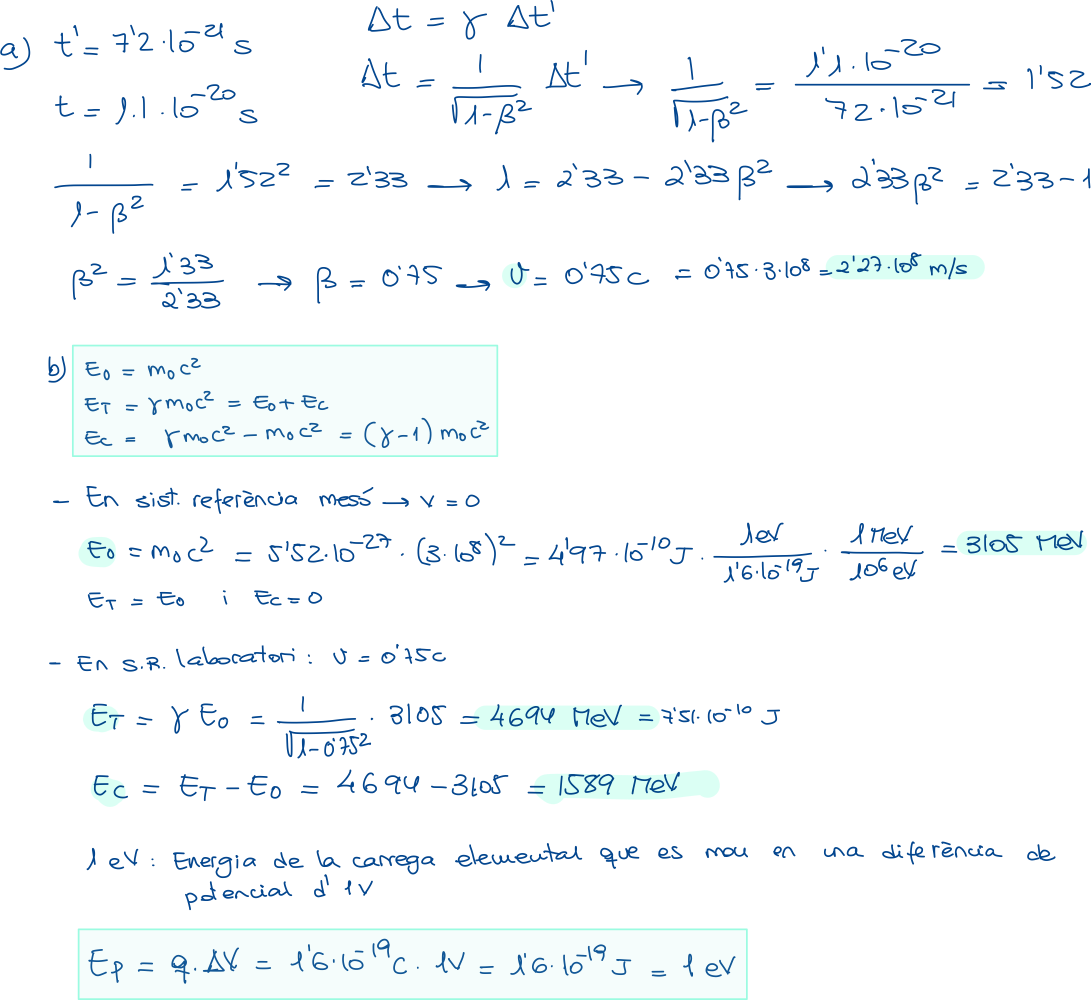 a) t' = 7'2·10⁻²¹ s
Δt = γ Δt'
t = 1.1·10⁻²⁰ s
Δt = 1/√(1-β²) Δt' → 1/√(1-β²) = 1'1·10⁻²⁰/72·10⁻²¹ = 1'52
1/(1-β²) = 1'52² = 2'33 → 1 = 2'33 - 2'33β² → 2'33β² = 2'33-1
β² = 1'33/2'33 → β = 0'75 → v = 0'75c = 0'75·3·10⁸ = 2'27·10⁸ m/s
b) E₀ = m₀c²
E_T = γm₀c² = E₀ + Ec
Ec = γm₀c² - m₀c² = (γ-1) m₀c²
- En sist. referència mesó → v = 0
E₀ = m₀c² = 5'52·10⁻²⁷·(3·10⁸)² = 4'97·10⁻¹⁰ J · 1eV/1'6·10⁻¹⁹J · 1 MeV/10⁶ eV = 3105 MeV
E_T = E₀ i Ec = 0
- En S.R. laboratori: v = 0'75c
E_T = γ E₀ = 1/√(1-0'75²) · 3105 = 4694 MeV = 7'51·10⁻¹⁰ J
Ec = E_T - E₀ = 4694 - 3105 = 1589 MeV
1 eV: Energia de la carrega elemental que es mou en una diferència de
potencial d' 1V
Ep = q·ΔV = 1'6·10⁻¹⁹C · 1V = 1'6·10⁻¹⁹ J = 1 eV